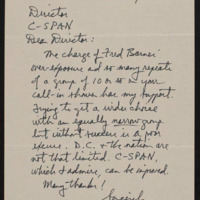 Director
C-SPAN
Dear Director:
The charge of Fred Barnes'
over-exposure and so many repeats
of a group of 10 or so on your
call-in shows has my support.
Trying to get a wide choice
with an equally narrow group
but without success is a poor
excuse. D.C. & the nation are
not that limited. C-SPAN,
which I admire, can be improved.
Many thanks!